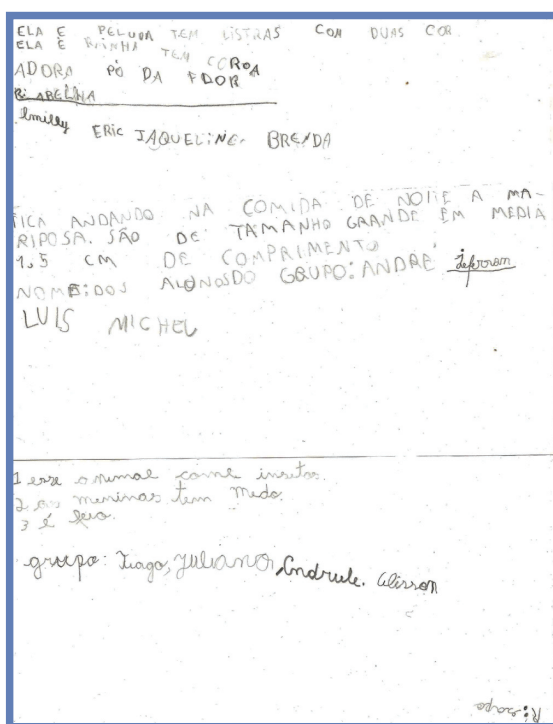 ELA E PELUDA TEM LISTRAS COM DUAS COR
ELA E RAINHA TEM COROA
ADORA PÓ DA FLOR
R: ABELHA
Emilly ERIC JAQUELINE. BRENDA
FICA ANDANDO NA COMIDA DE NOITE A MA-
RIPOSA. SÃO DE TAMANHO GRANDE EM MEDIA
1,5 CM DE COMPRIMENTO
NOME: DOS ALUNOS DO GRUPO: ANDRÉ
LUIS MICHEL
1 esse animal come insetos.
2 as meninas tem medo.
3 é feio.
grupo: Tiago, Juliano, Alisson
R: sapo